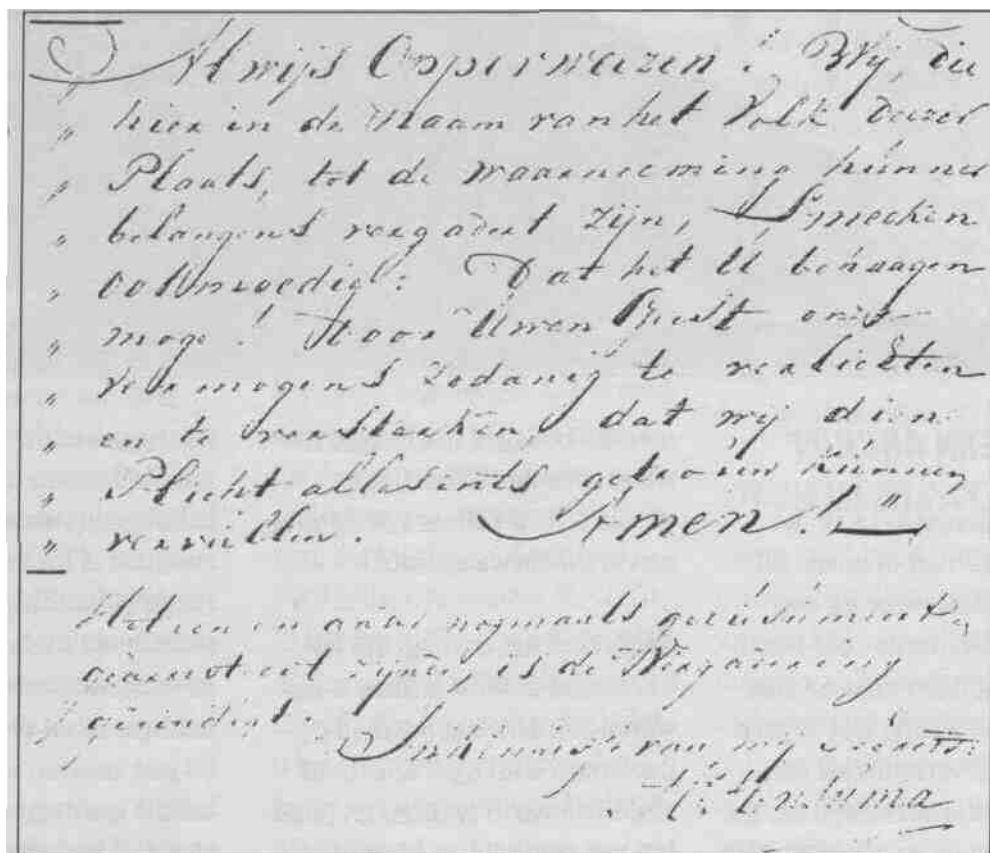 Alwijs Opperweezen! Wij, die
„ hier in de Naam van het Volk Deezer
„ Plaats, tot de waarneeming hunner
„ belangens vergadert Zijn, Smeeken
„ ootmoedig: Dat het U behaagen
„ moge! door Uwen Geest onze
„ Vermogens Zodanig te verlichten
„ en te versterken, dat wij dien
„ Plicht allesints getrouw kunnen
„ vervullen. Amen! „
en daar nogmaals geresumeert,
gearresteert zijnde is de Vergadering
„ geëindigt.
In kennisse van mij Secrets: